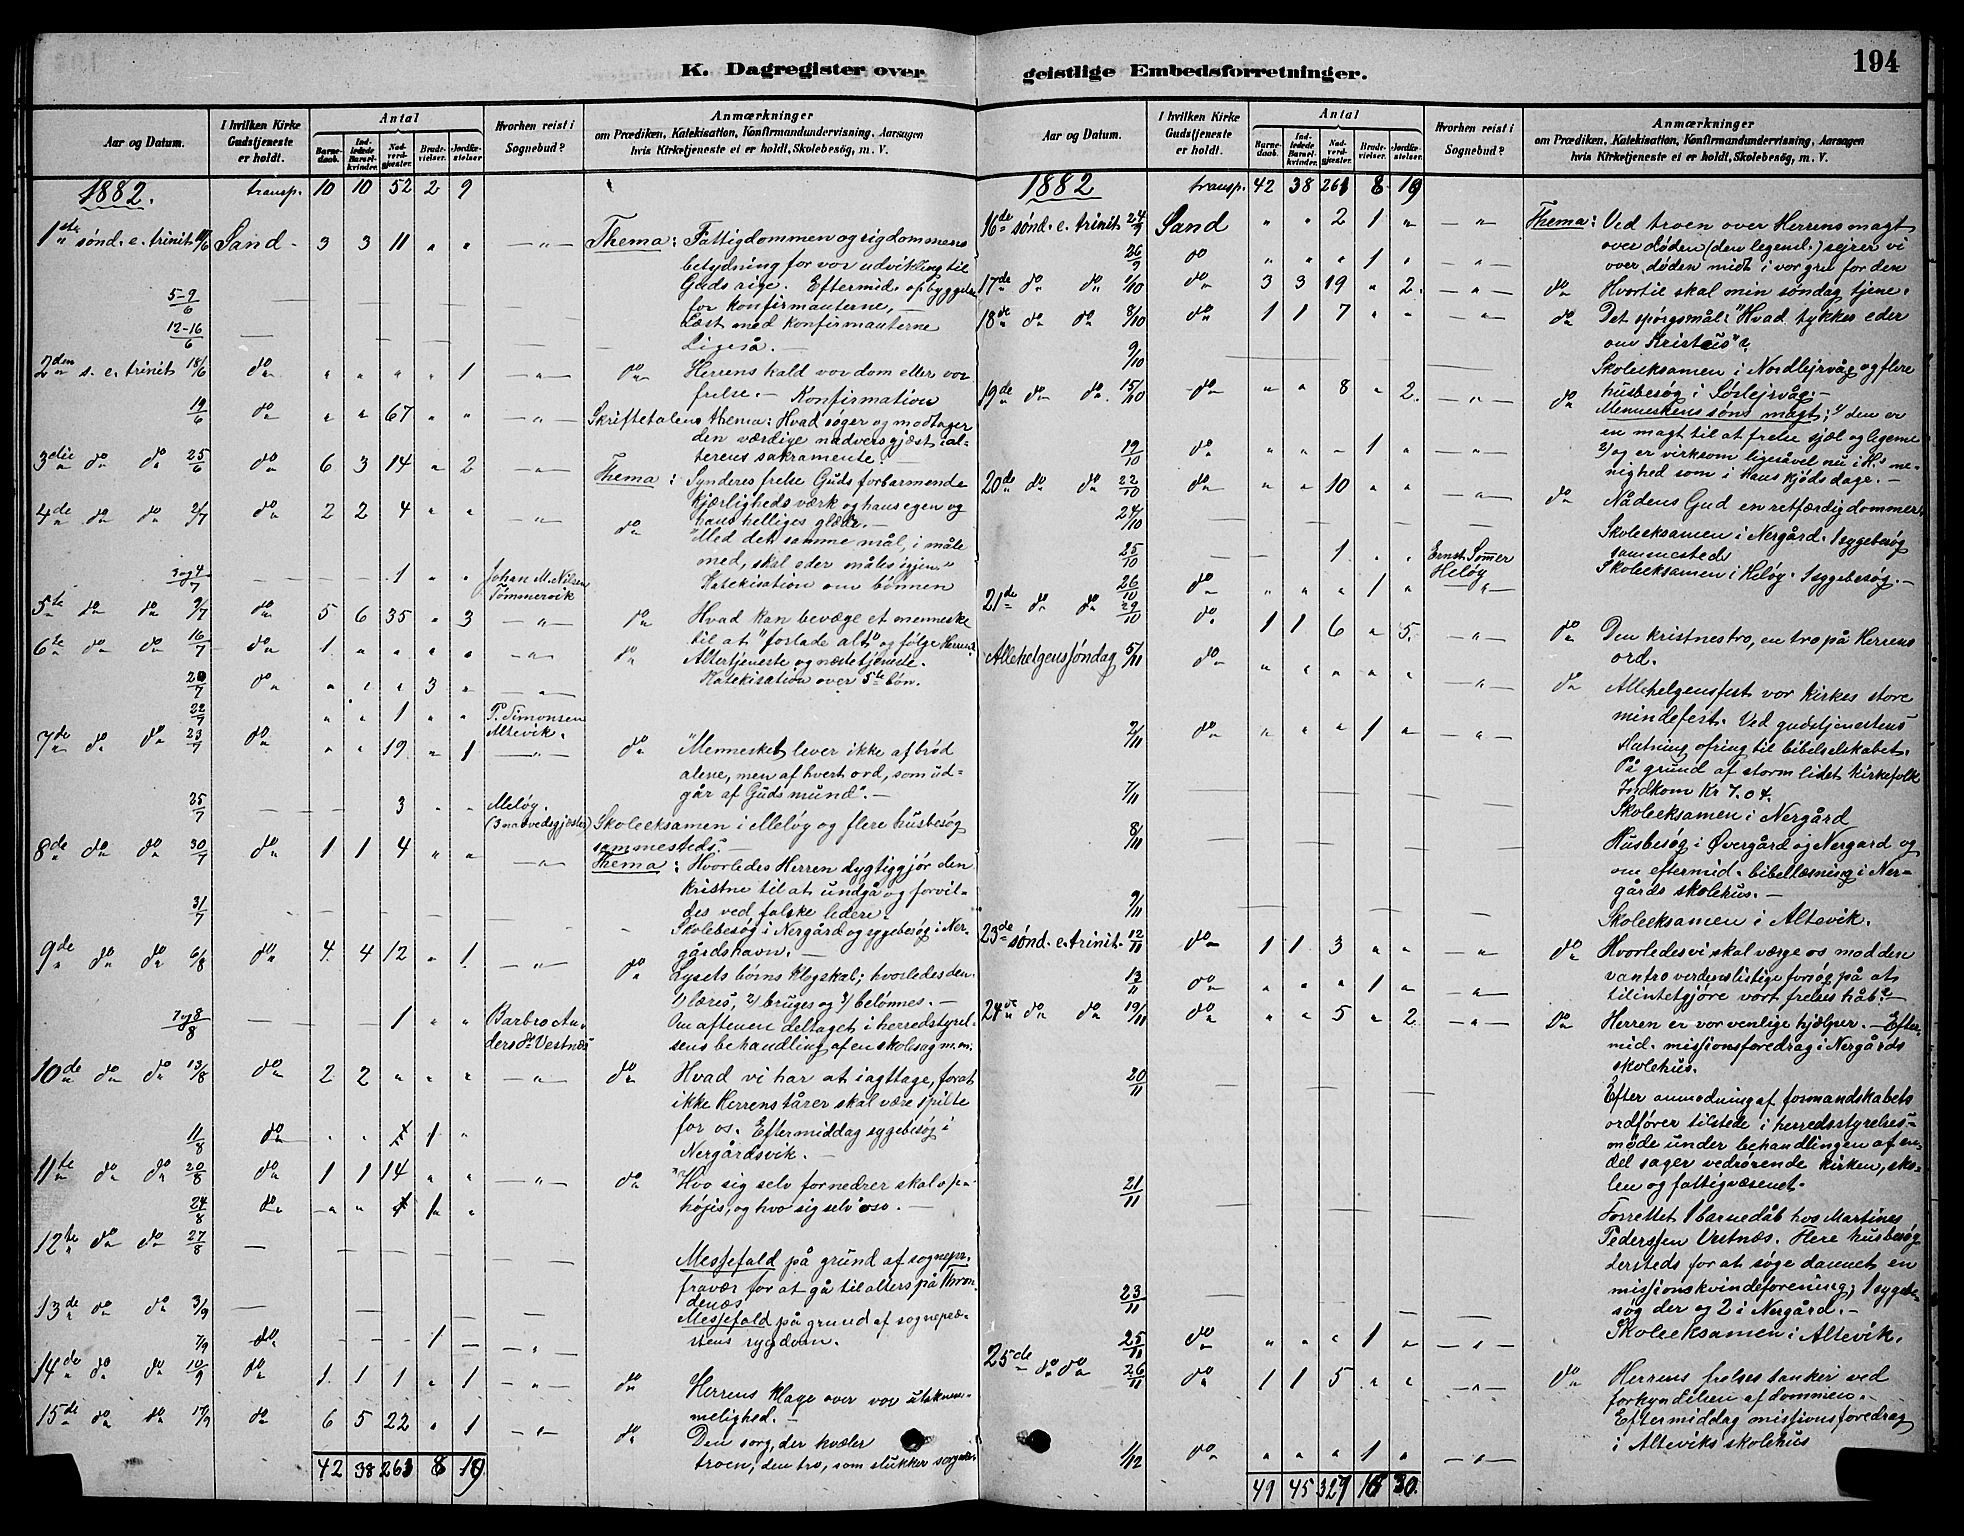 K. Dagregister over geistlige Embedsforretninger.
194
Aar og Datum.
I hvilken Kirke Gudstjeneste er holdt.
Antal
Barnedaab.
Indledede Barselkvinder.
Nadverdgjester.
Brudevielser.
Jordfæstelser
Hvorhen reist i Sognebud?
Anmærkninger
om Prædiken, Katekisation, Konfirmandundervisning, Aarsagen
hvis Kirketjeneste ei er holdt, Skolebesøg, m. V.
1882. transp. 10 10 52 2 9
1ste sønd. e. trinit 11/6 Sand 3 3 11 " " — " — Thema: Fattigdommen og rigdommens
betydning for vor udvikling til
Guds rige. Eftermid. opbyggelse
for konfirmanterne. —
5-9/6 Læst med konfirmanterne
12-16/6 — Ligeså. —
2den s. e. trinit 18/6 do " " " " 1 — " — do Herrens kald vor dom eller vor
frelse. — Konfirmation
19/6 do " " 67 " " — " — Skriftetalens thema: Hvad søger og modtager
den værdige nadversgjæst i al-
terens sakramente. —
3die do do 25/6 do 6 3 14 " 2 — " — Thema: Synderes frelse Guds forbarmende
kjærligheds værk og hans egen og
hans helliges glæde. —
4de do do 2/7 do 2 2 4 " " — " — do "Med det samme mål, i måle
med, skal eder måles igjen."
Katekisation om bønnen
3 og 4/7 — — — 1 " " Johan M. Nilsen
Tømmervik
5te do do 9/7 do 5 6 35 " 3 — " — do Hvad kan bevæge et menneske
til at "forlade alt" og følge Herren?
6te do do 16/7 do 1 " " " " — " — do Altertjeneste og næstetjeneste.
Katekisation over 5te bøn.
20/7 do " " " 3 " — " —
22/7 " " 1 " " P. Simonsen
Altevik.
7de do do 23/7 do " " 19 " 1 — " — do "Mennesket lever ikke af brød
alene, men af hvert ord, som ud-
går af Guds mund". —
25/7 — — — 3 " " Meløy.
(3 nadvedsgjæster) Skoleeksamen i Meløy og flere husbesøg
sammesteds.
8de do do 30/7 do 1 1 4 " " — " — Thema: Hvorledes Herren dygtiggjør den
kristne til at undgå og forvil-
des ved falske ledere.
31/7 — — — — — — Skolebesøg i Nergård og sygebesøg i Ner-
gårdshavn. —
9de do do 6/8 do 4 4 12 " 1 — " — do Lysets børns klogskab; hvorledes den
1) læres, 2) bruges og 3) belønnes. —
7 og 8/8 1 " " Barbro An-
ders dr Vestnæs Om aftenen deltaget i herredstyrel-
sens behandling af en skolesag m. m.
10de do do 13/8 do 2 2 " " " — " — do Hvad vi har at iagttage, forat
ikke Herrens tårer skal være spilte
for os. Eftermiddag sygebesøg i
Nergårdsvik. —
11/8 do " " 1 "
11te do do 20/8 do 1 1 14 " " — " — do "Hvo sig selv fornedrer skal op-
højes, og hvo sig selv" osv. —
24/8 do — " " 1 "
12te do do 27/8 — Messefald på grund af sognepr.
fravær for at gå til alters på Thron
denæs
13de do do 3/9 — Messefald på grund af sognepræ-
stens sygdom.
7/9 do — — — 1 — — " —
14de do do 10/9 do 1 1 1 " 1 — " — do Herrens klage over vor utaknem-
melighed. —
15de do do 17/9 do 6 5 22 " 1 — " — do Den sorg, der kvæler
troen, den tro, som slukker sorgen.
42 38 263 8 19
Aar og Datum.
I hvilken Kirke Gudstjeneste er holdt.
Antal
Barnedaab.
Indledede Barselkvinder.
Nadverdgjester.
Brudevielser.
Jordfæstelser.
Hvorhen reist i Sognebud?
Anmærkninger
om Prædiken, Katekisation, Konfirmandundervisning, Aarsagen
hvis Kirketjeneste ei er holdt, Skolebesøg, m. V.
1882 transp. 42 38 263 8 19
16de sønd. e. trinit 24/9 Sand " " 2 1 " — " — Thema: Ved troen over Herrens magt
over døden (den legeml.) sejrer vi
26/9 do " " " 1 " — " — over døden midt i vor gru for den
17de do do 1/10 do 3 3 19 " 2 — " — do Hvortil skal min søndag tjene.
18de do do 8/10 do 1 1 7 " " — " — do Det spørgsmål: "Hvad tykkes eder
om Kristus"?
9/10 — — — Skoleeksamen i Nordlejrvåg og flere
husbesøg i Sørlejrvåg. —
19de do do 15/10 do " " 8 " 2 — " — do Menneskens søns magt: 1) den er
en magt til at frelse sjæl og legeme
19/10 do " " " 1 " — " — 2) og er virksom ligesåvel nu i Hs me-
nighed som i Hans kjøds dage. —
20de do do 22/10 do " " 10 " " — " — do Nådens Gud en retfærdig dommer.
24/10 — — — Skoleeksamen i Nergård. 1 sygebesøg
sammesteds
25/10 — — 1 " " Ernst Sømer
Heløy Skoleeksamen i Heløy. 1 sygebesøg. —
26/10 do " " " 1 " — " —
21de do do 29/10 do 1 1 6 " 5 — " — do Den kristnes tro, en tro på Herrens
ord.
Allehelgenssøndag 5/11 do " " " " " — " — do Allehelgensfest vor kirkes store
mindefest. Ved gudstjenestens
2/11 do " " " 1 " — " — slutning ofring til bibelselskabet.
På grund af storm lidet kirkefolk
Indkom Kr 7.04.
7/11 — — — Skoleeksamen i Nergård
8/11 — — — Husbesøg i Øvergård og Nergård og
om eftermid. bibellæsning i Ner-
gårds skolehus. —
9/11 — — — Skoleeksamen i Altevik.
23de sønd. e. trinit. 12/11 do 1 1 3 " " — " — do Hvorledes vi skal værge os mod den
vantro verdens listige forsøg på at
13/11 do " " " 1 " — " — tilintetgjøre vort frelses håb? —
24de do do 19/11 do " " 5 " 2 — " — do Herren er vor venlige hjælper. — Efter-
mid. missionsforedrag i Nergårds
skolehus.
20/11 — — — Efter anmodning af formandskabets
ordfører tilstede i herredsstyrelses-
møde under behandlingen af en
del sager vedrørende kirken, sko-
len og fattigvæsenet.
21/11 — — — Forrettet 1 barnedåb hos Martines
Pederssen Vestnæs. Flere husbesøg
dersteds for at søge dannet en
missionskvindeforening; 1 sygebe-
søg der og 2 i Nergård. —
23/11 — — — Skoleeksamen i Altevik.
25/11 do " " " 1 " — " —
25de do do 26/11 do 1 1 5 " " — " — do Herrens frelsestanker ved
forkyndelsen af dommen. —
Eftermiddag missionsforedrag
i Alteviks skolehus
1/12 do " " " 1 " — " —
49 45 329 16 30.